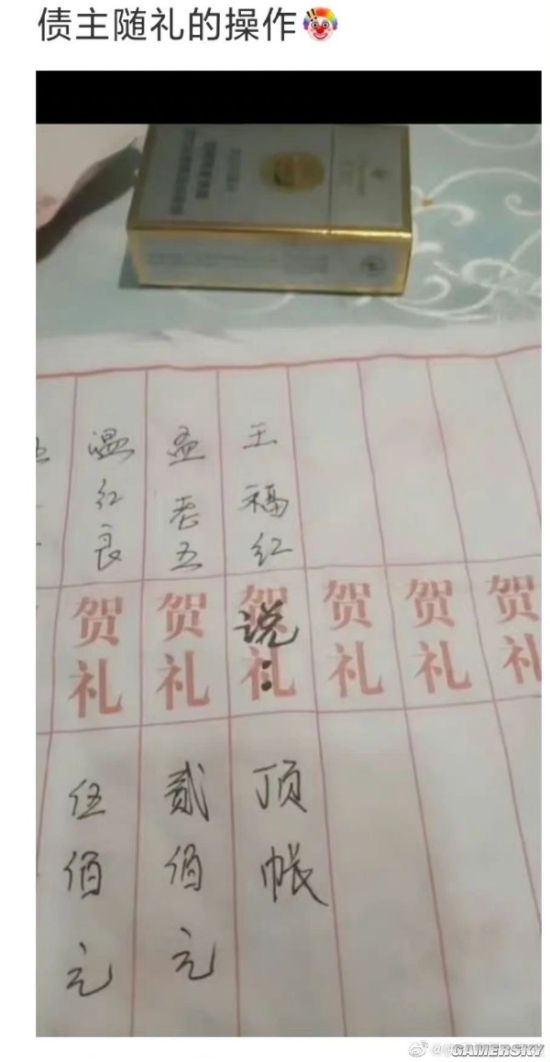 债主随礼的操作🤡
温红良
贺礼
伍佰元
孟老五
贺礼
贰佰元
王福红
贺礼
说:
顶帐
贺礼
贺礼
贺礼
GAMERSKY